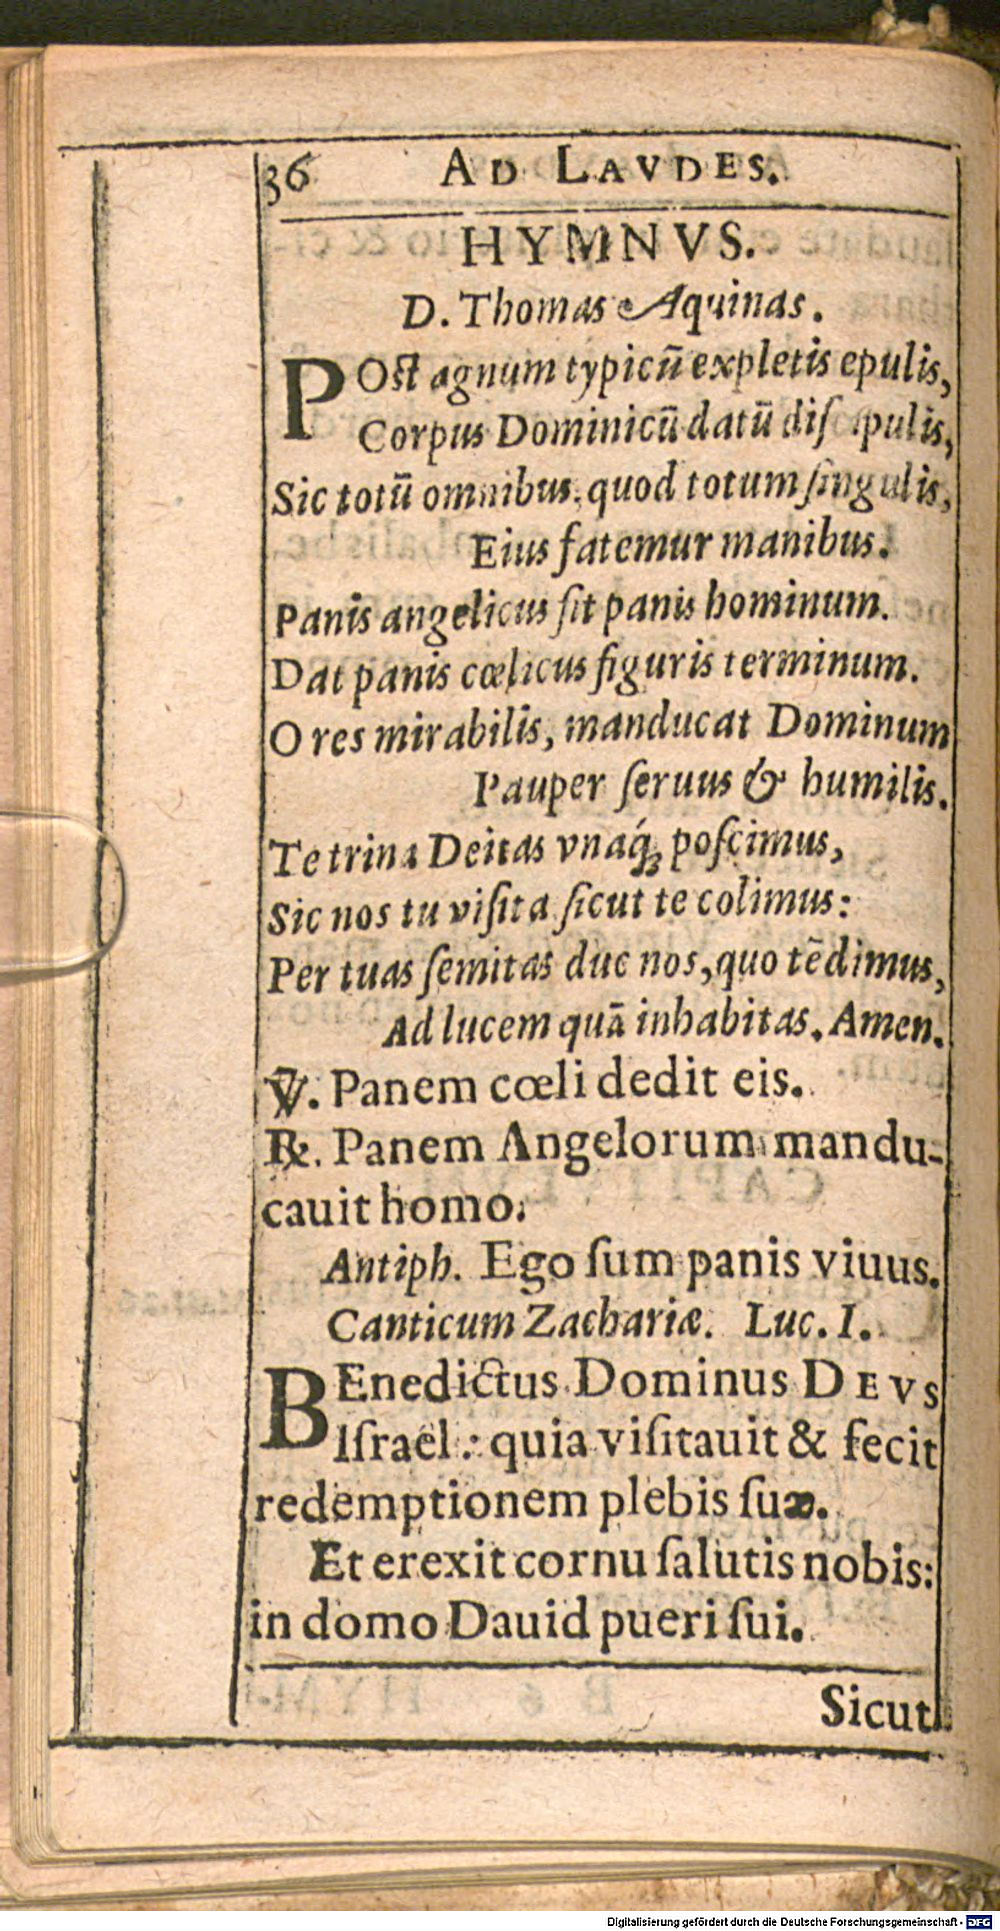 36 AD LAVDES.
HYMNVS.
D. Thomas Aquinas.
POſt agnum typicū expletis epulis,
Corpus Dominicū datū diſcipulis,
Sic totū omnibus, quod totum ſingulis,
Eius fatemur manibus.
Panis angelicus fit panis hominum.
Dat panis cœlicus figuris terminum.
O res mirabilis, manducat Dominum
Pauper ſeruus & humilis.
Te trina Deitas vnaq́ꝫ poſcimus,
Sic nos tu viſita ſicut te colimus:
Per tuas ſemitas duc nos, quo tēdimus,
Ad lucem quā inhabitas. Amen.
℣. Panem cœli dedit eis.
℟. Panem Angelorum mandu-
cauit homo.
Antiph. Ego ſum panis viuus.
Canticum Zachariæ. Luc. I.
BEnedictus Dominus DEVS
Iſrael: quia viſitauit & fecit
redemptionem plebis ſuæ.
Et erexit cornu ſalutis nobis:
in domo Dauid pueri ſui.
Sicut
Digitalisierung gefördert durch die Deutsche Forschungsgemeinschaft - DFG